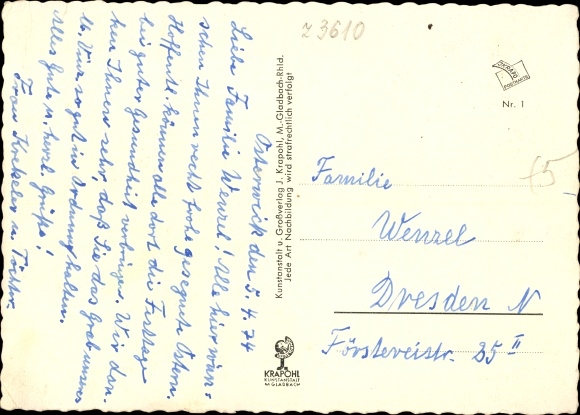 Z 3610
Osterwick den 5.4.74
Liebe Familie Wenzel! Alle hier wün-
schen Ihnen recht frohe gesegnete Ostern.
Hoffentl. können alle dort die Festtage
bei guter Gesundheit verbringen. Wir dan-
ken Ihnen sehr, daß Sie das Grab unseres
lb. Vim so gut in Ordnung halten.
Alles Gute u. herzl. Grüße!
Frau u. Töchter.
Kunstanstalt u. Großverlag J. Krapohl, M.-Gladbach-Rhld.
Jede Art Nachbildung wird strafrechtlich verfolgt
KRAPOHL
KUNSTANSTALT
M.GLADBACH
POSTKARTE
Nr. 1
f5
Familie
Wenzel
Dresden N
Förstereistr. 35 II